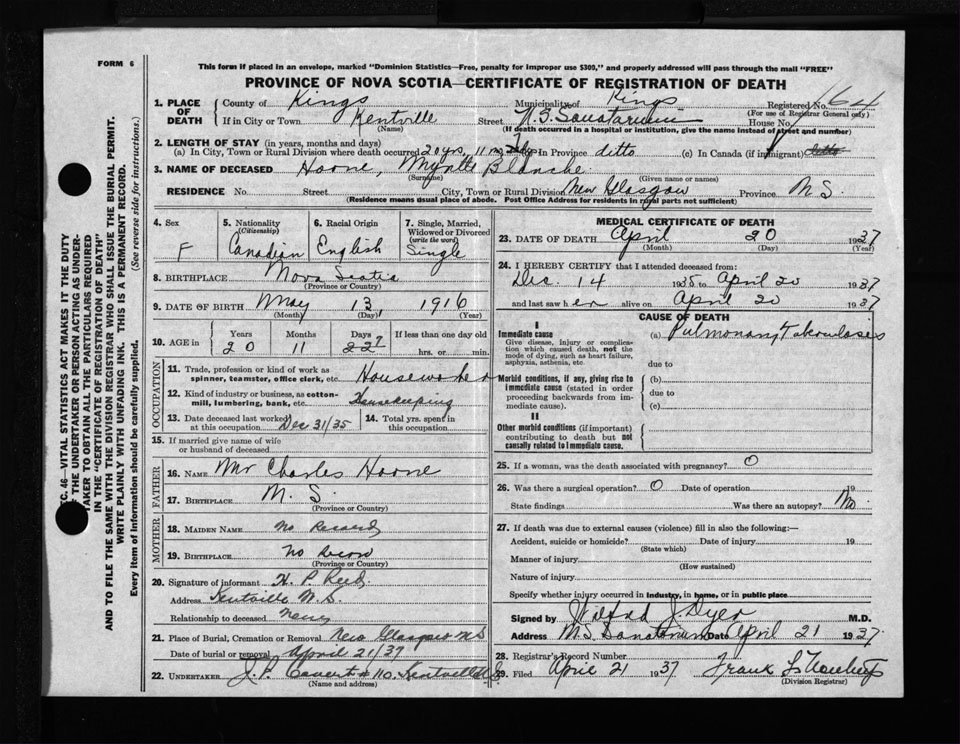 FORM 6
This form if placed in an envelope, marked "Dominion Statistics—Free, penalty for improper use $300," and properly addressed will pass through the mail "FREE"
PROVINCE OF NOVA SCOTIA—CERTIFICATE OF REGISTRATION OF DEATH
1. PLACE OF DEATH
County of Kings Municipality of Kings Registered No. 64
(For use of Registrar General only)
If in City or Town Kentville Street N.S. Sanatorium House No.
(Name) (If death occurred in a hospital or institution, give the name instead of street and number)
2. LENGTH OF STAY (in years, months and days)
(a) In City, Town or Rural Division where death occurred 20 yrs, 11 m, In Province ditto (c) In Canada (if immigrant) ditto
3. NAME OF DECEASED Horne, Myrtle Blanche
(Surname) (Given name or names)
RESIDENCE No. Street City, Town or Rural Division New Glasgow Province N.S.
(Residence means usual place of abode. Post Office Address for residents in rural parts not sufficient)
4. Sex F
5. Nationality (Citizenship) Canadian
6. Racial Origin English
7. Single, Married, Widowed or Divorced (write the word) Single
8. BIRTHPLACE Nova Scotia
(Province or Country)
9. DATE OF BIRTH May 13, 1916
(Month) (Day) (Year)
10. AGE in Years 20 Months 11 Days If less than one day old hrs. or min.
OCCUPATION
11. Trade, profession or kind of work as spinner, teamster, office clerk, etc. Houseworker
12. Kind of industry or business, as cotton-mill, lumbering, bank, etc. Housekeeping
13. Date deceased last worked at this occupation Dec 31/35
14. Total yrs. spent in this occupation
15. If married give name of wife or husband of deceased
FATHER
16. NAME Mr Charles Horne
17. BIRTHPLACE N. S.
(Province or Country)
MOTHER
18. MAIDEN NAME No Record
19. BIRTHPLACE No Record
(Province or Country)
20. Signature of informant H. P. Reed
Address Kentville N.S.
Relationship to deceased None
21. Place of Burial, Cremation or Removal New Glasgow N.S.
Date of burial or removal April 21/37
22. UNDERTAKER Kentville N.S.
(Name and address)
MEDICAL CERTIFICATE OF DEATH
23. DATE OF DEATH April 20 1937
(Month) (Day) (Year)
24. I HEREBY CERTIFY that I attended deceased from:
Dec. 14 1935 to April 20 1937
and last saw her alive on April 20 1937
CAUSE OF DEATH
I
Immediate cause
Give disease, injury or complication which caused death, not the mode of dying, such as heart failure, asphyxia, asthenia, etc.
(a) Pulmonary Tuberculosis
due to
Morbid conditions, if any, giving rise to immediate cause (stated in order proceeding backwards from immediate cause).
(b)
due to
(c)
II
Other morbid conditions (if important) contributing to death but not causally related to immediate cause.
25. If a woman, was the death associated with pregnancy? O
26. Was there a surgical operation? O Date of operation 19
State findings Was there an autopsy? No
27. If death was due to external causes (violence) fill in also the following:—
Accident, suicide or homicide? Date of injury 19
(State which)
Manner of injury
(How sustained)
Nature of injury
Specify whether injury occurred in industry, in home, or in public place
Signed by Wilfred J Dyer M.D.
Address N.S. Sanatorium Date April 21 1937.
28. Registrar's Record Number
29. Filed April 21 1937 Frank
(Division Registrar)
SEC. 46—VITAL STATISTICS ACT MAKES IT THE DUTY
OF THE UNDERTAKER OR PERSON ACTING AS UNDERTAKER TO OBTAIN ALL THE PARTICULARS REQUIRED
IN THE "CERTIFICATE OF REGISTRATION OF DEATH"
AND TO FILE THE SAME WITH THE DIVISION REGISTRAR WHO SHALL ISSUE THE BURIAL PERMIT.
WRITE PLAINLY WITH UNFADING INK. THIS IS A PERMANENT RECORD.
Every item of information should be carefully supplied. (See reverse side for instructions.)